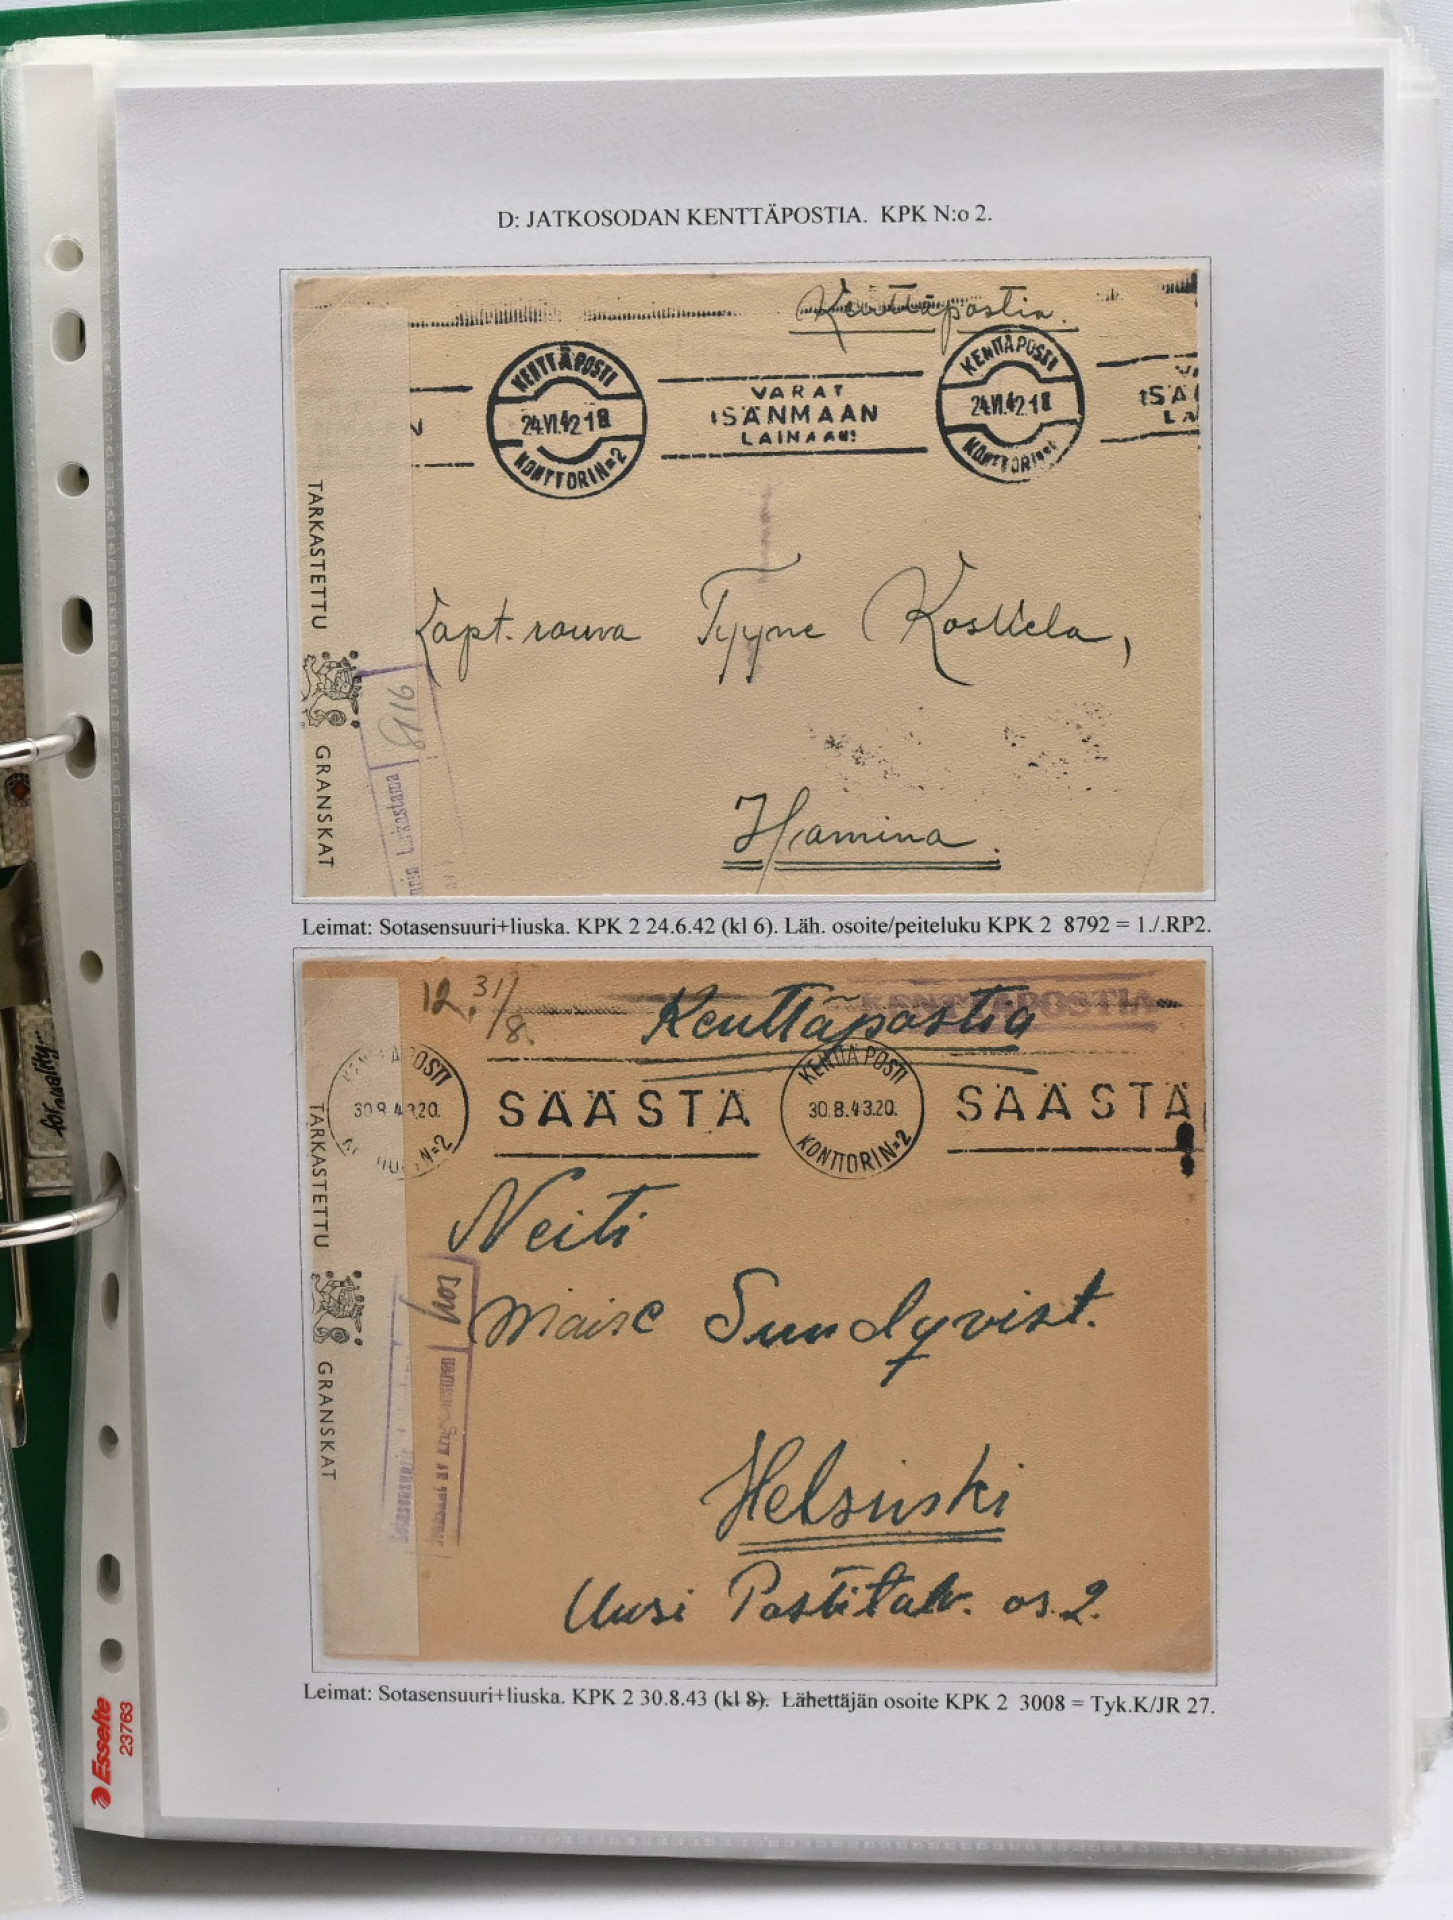 D: JATKOSODAN KENTTÄPOSTIA. KPK N:o 2.
Kenttäpostia.
KENTTÄPOSTI
24.VI.42 18
KONTTORI N=2
VARAT
ISÄNMAAN
LAINAAN!
KENTTÄPOSTI
24.VI.42 18
KONTTORI
TARKASTETTU
GRANSKAT
Kapt. rouva Tyyne Koskela,
Hamina.
Leimat: Sotasensuuri+liuska. KPK 2 24.6.42 (kl 6). Läh. osoite/peiteluku KPK 2 8792 = 1./.RP2.
12. 31/8.
Kenttäpostia
KENTTÄPOSTIA
POSTI
30.8.43.20.
N=2
SÄÄSTÄ
KENTTÄ POSTI
30.8.43.20.
KONTTORI N=2
SÄÄSTÄ
TARKASTETTU
GRANSKAT
Neiti
Maise Sundqvist.
Helsinki
Uusi Postital. os. 2.
Leimat: Sotasensuuri+liuska. KPK 2 30.8.43 (kl 8). Lähettäjän osoite KPK 2 3008 = Tyk.K/JR 27.
Esselte
23763